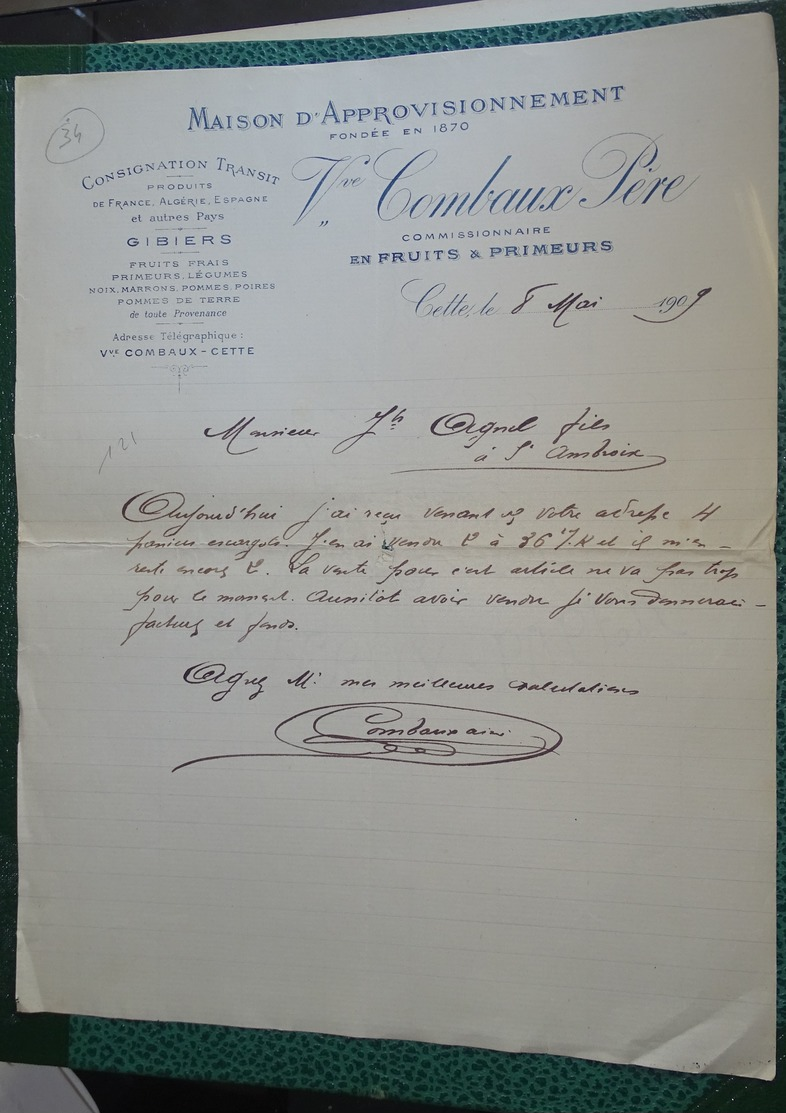 34
MAISON D'APPROVISIONNEMENT
FONDÉE EN 1870
CONSIGNATION TRANSIT
PRODUITS
DE FRANCE, ALGÉRIE, ESPAGNE
et autres Pays
GIBIERS
FRUITS FRAIS
PRIMEURS, LÉGUMES
NOIX, MARRONS, POMMES, POIRES
POMMES DE TERRE
de toute Provenance
Adresse Télégraphique :
Vve COMBAUX - CETTE
Vve Combaux Père
COMMISSIONNAIRE
EN FRUITS & PRIMEURS
Cette, le 8 Mai 1909
121
Monsieur Jh Agnel fils
à St Ambroix
Aujourd'hui j'ai reçu venant de votre adresse 4
paniers escargots. J'en ai vendu 2 à 36 f % K et il m'en
reste encore 2. La vente pour c'est article ne va pas trop
pour le moment. Aussitot avoir vendu je vous donnerai
facture et fonds.
Agréez Mr mes meilleures salutations
Combaux ainé